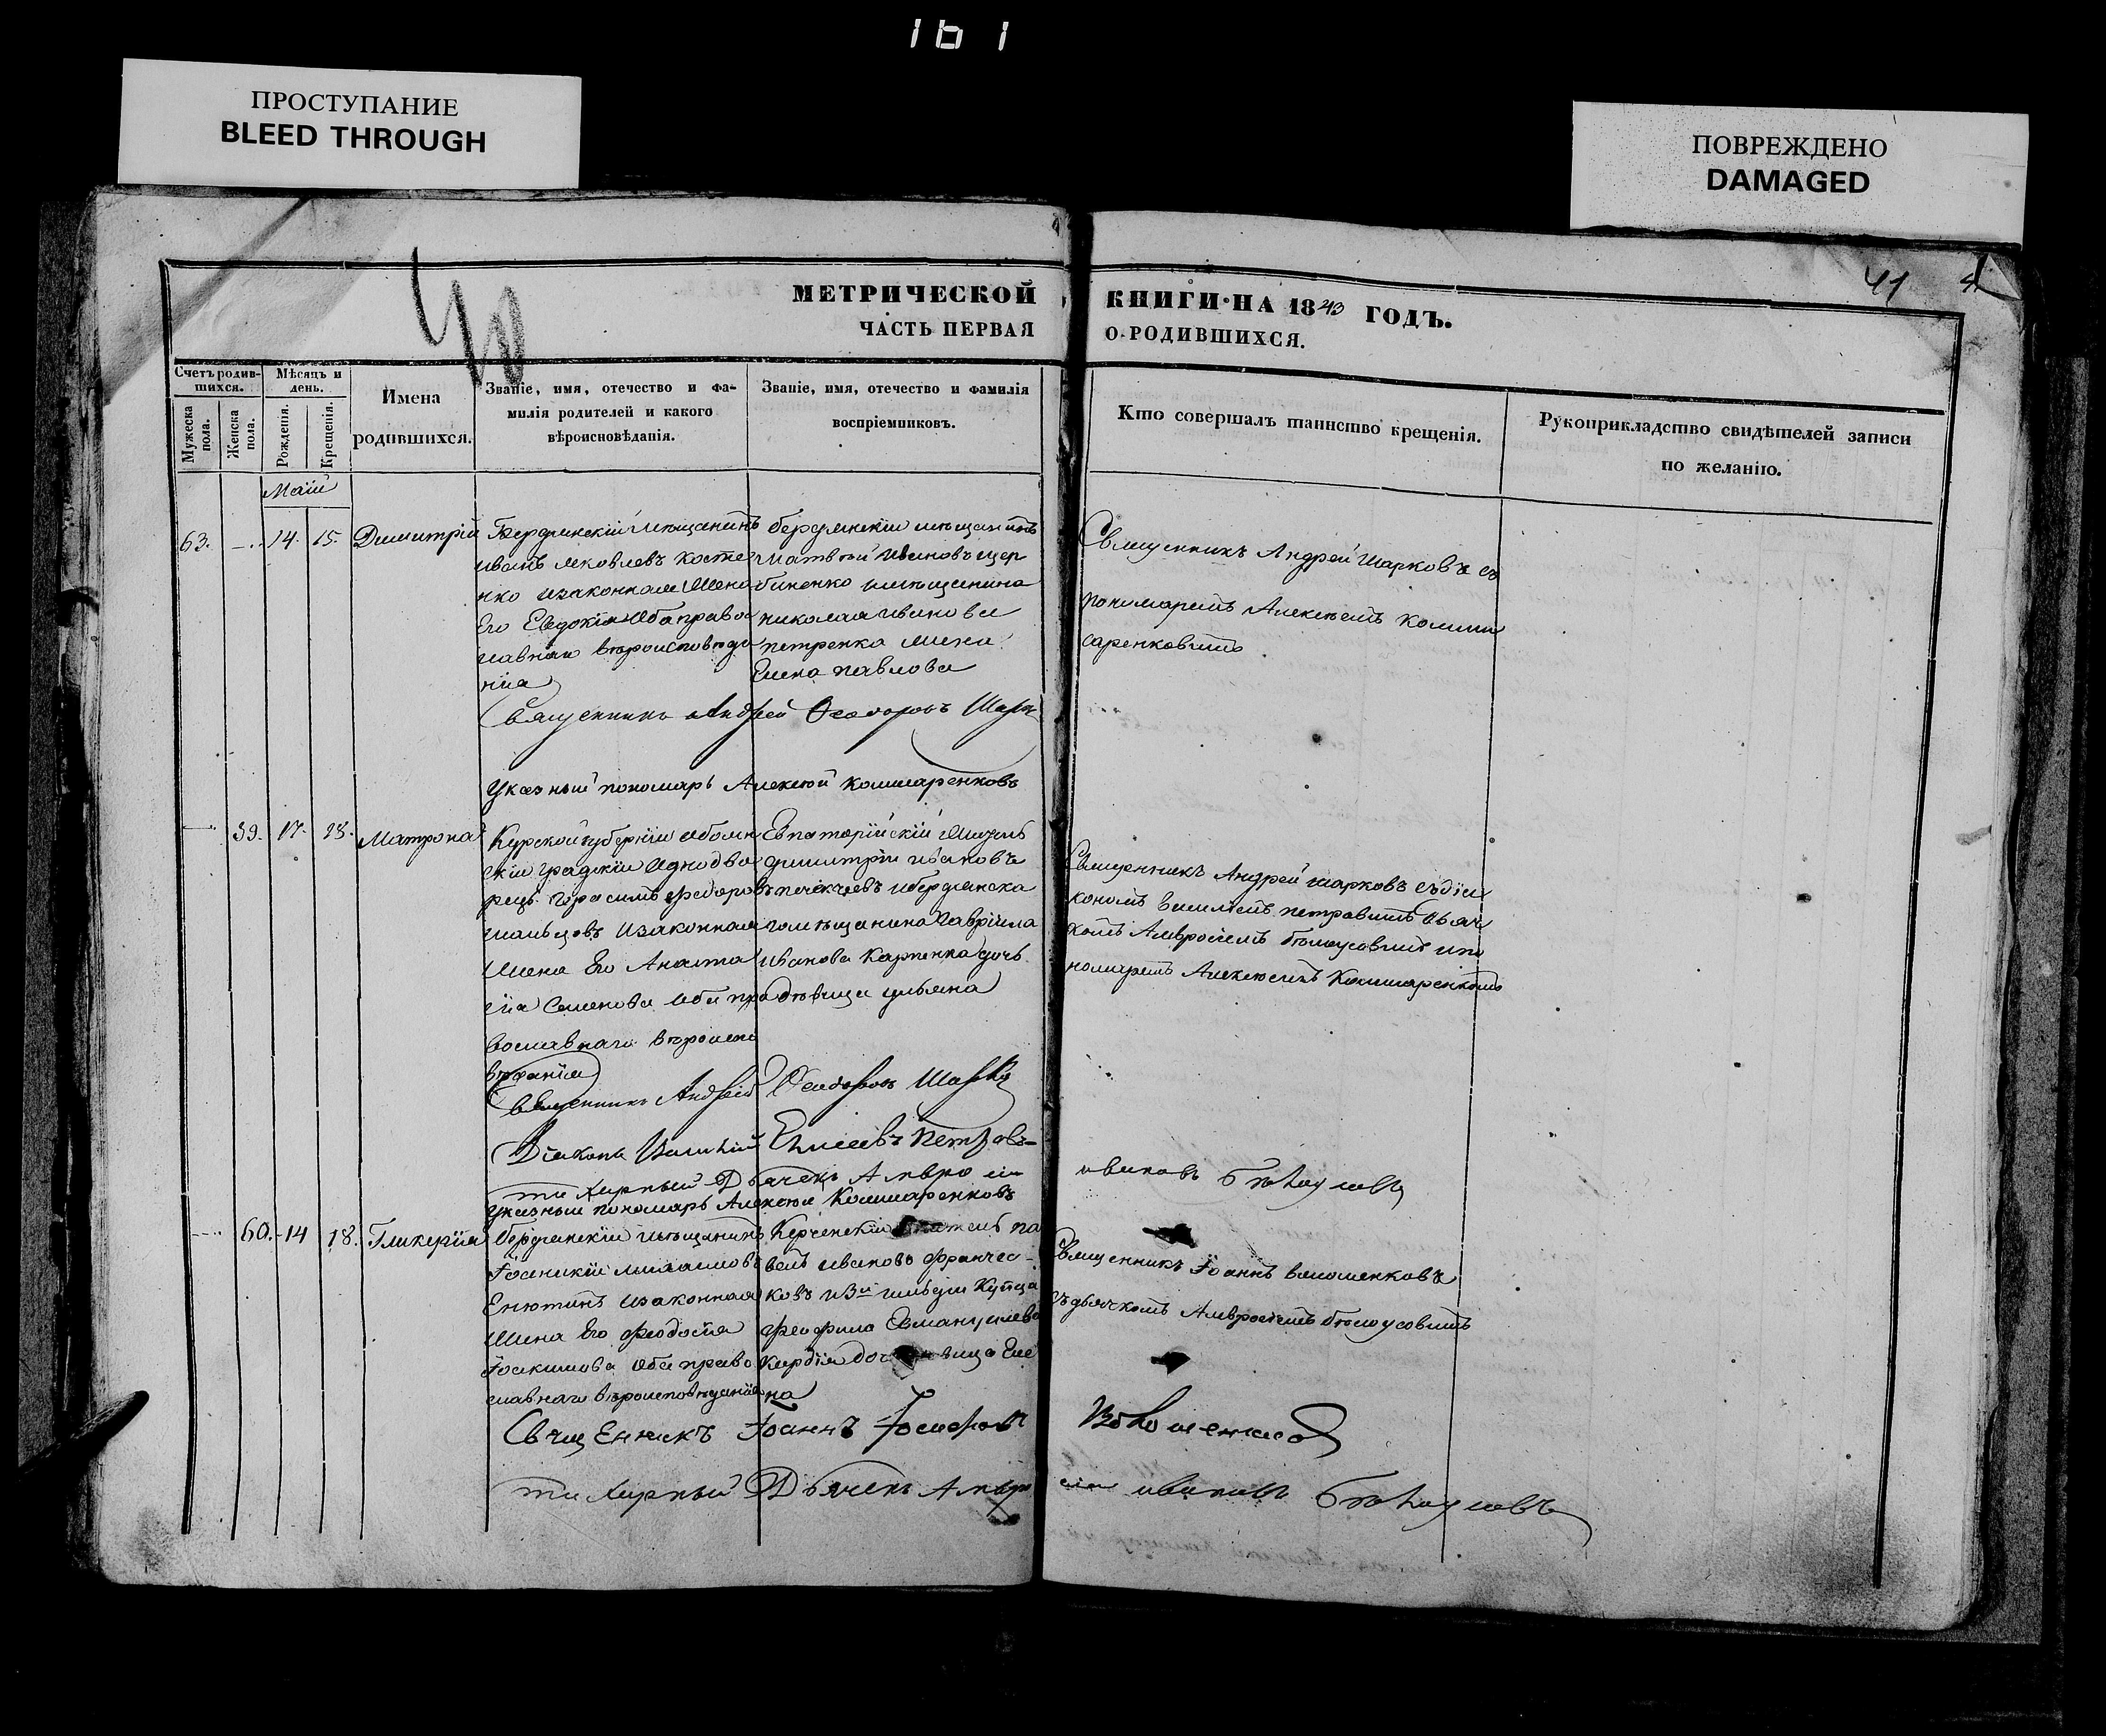 161
ПРОСТУПАНИЕ
BLEED THROUGH
ПОВРЕЖДЕНО
DAMAGED
40
41
МЕТРИЧЕСКОЙ
ЧАСТЬ ПЕРВАЯ
КНИГИ НА 1843 ГОДЪ.
О РОДИВШИХСЯ.
Счетъ родив-
шихся.
Мужеска пола.
Женска пола.
Мѣсяцъ и
день.
Рожденія.
Крещенія.
Имена
родившихся.
Званіе, имя, отечество и фа-
милія родителей и какого
вѣроисповѣданія.
Званіе, имя, отечество и фамилія
воспріемниковъ.
Кто совершалъ таинство крещенія.
Рукоприкладство свидѣтелей записи
по желанію.
Маій
63. 14. 15. Димитрій
Бердянскій мещанинъ
иванъ яковлевъ Косте
нко изаконная Жена
Его Евдокія оба право
славнаго вѣроисповѣда
нія
бердянскій мещанинъ
матвѣй ивановъ щер
биненко имѣщанина
николая иванова
петренка жена
Елена павлова
Священникъ Андрей Шарковъ съ
пономаремъ Алексѣемъ Комми
саренковымъ
Священникъ Андрей Феодоровъ Шарк
Указный пономарь Алексѣй Комисаренковъ
59. 17. 23. Матрона
Курской губерніи обоян
скій градскій однодво
рецъ Герасимъ федоров
мальцовъ изаконная
Жена Его Анаста
сія Семенова оба пра
вославнаго вѣроиспо
вѣданія
Евпаторійскій
димитрій ивановъ
ибердянска
го мѣщанина Гавріила
иванова Карпенка дочь
дѣвица ульяна
Священникъ Андрей шарковъ съдія
кономъ василіемъ петровымъ дьяч
комъ Амвросіемъ бѣлоусовымъ ипо
номаремъ Алексѣемъ Коммисаренковымъ
Священникъ Андрей Феодоровъ Шарко
Діаконъ Василій Елисеевъ Петровъ
стихарный Дьячекъ Амвросій ивановъ Бѣлоусовъ
указный пономарь Алексѣй Коммисаренковъ
60. 14 18. Гликерія
бердянскій мещанинъ
Іоаникій михаиловъ
Енютинъ изаконная
Жена Его феодосія
Іоакимова оба право
славнаго вѣроисповѣданія
Керченскій па
велъ ивановъ Франчес
ковъ и 3й гильдіи Купца
феофила Еммануилева
Еле
на
Священникъ Іоаннъ волошенковъ
съ дьячкомъ Амвросіемъ бѣлоусовымъ
Священникъ Іоаннъ Іосифовъ Волошенковъ
стихарный Дьячекъ Амвросій ивановъ Бѣлоусовъ